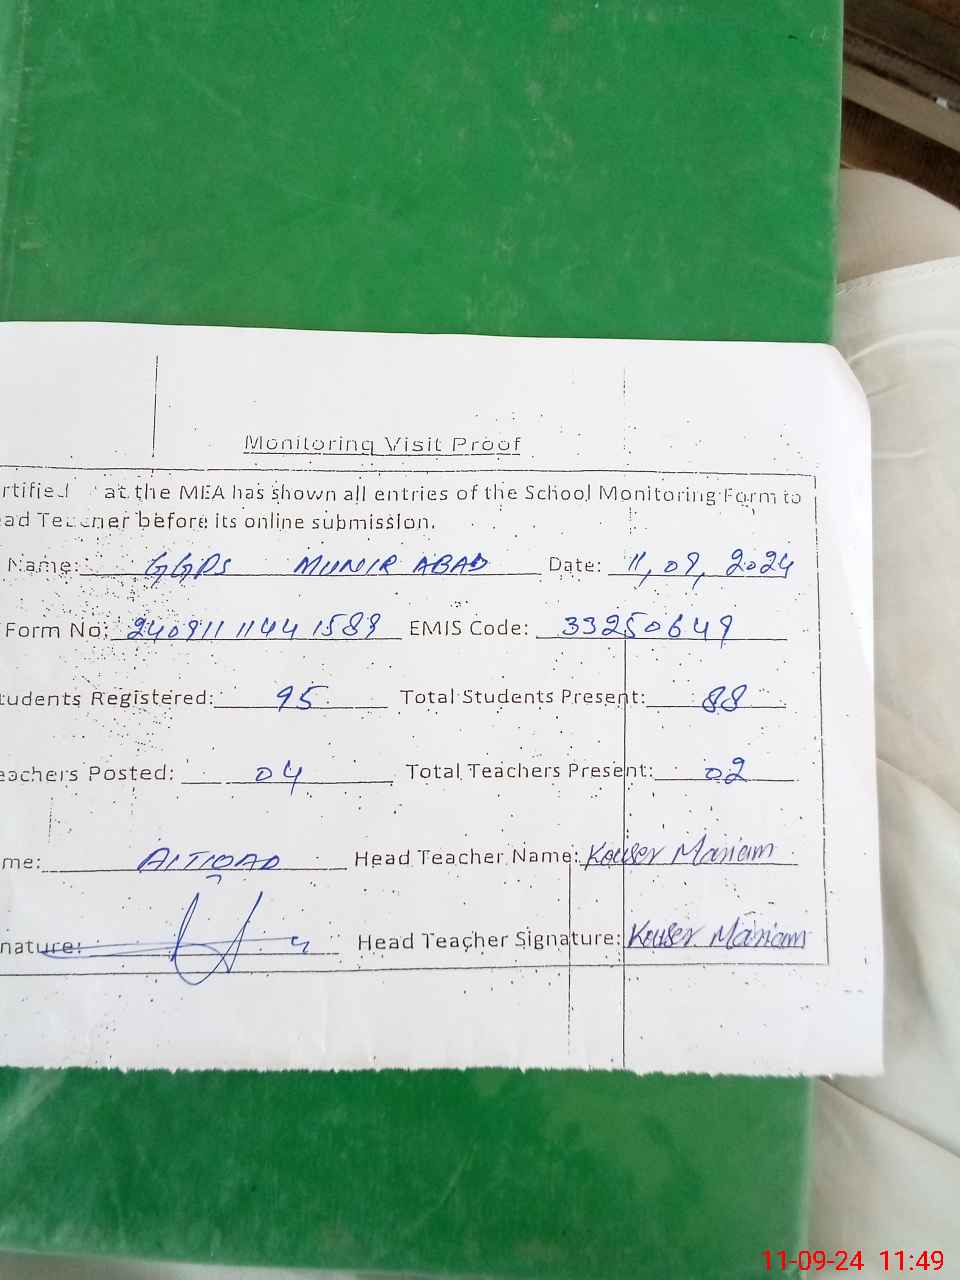 Monitoring Visit Proof
rtified at the MEA has shown all entries of the School Monitoring Form to
ad Teacher before its online submission.
Name: GGPS MUNIR ABAD Date: 11, 09, 2024
Form No: 240911 1144 1589 EMIS Code: 33250649
tudents Registered: 95 Total Students Present: 88
eachers Posted: 04 Total Teachers Present: 02
me: Head Teacher Name: Kouser Mariam
nature: Head Teacher Signature: Kouser Mariam
11-09-24 11:49